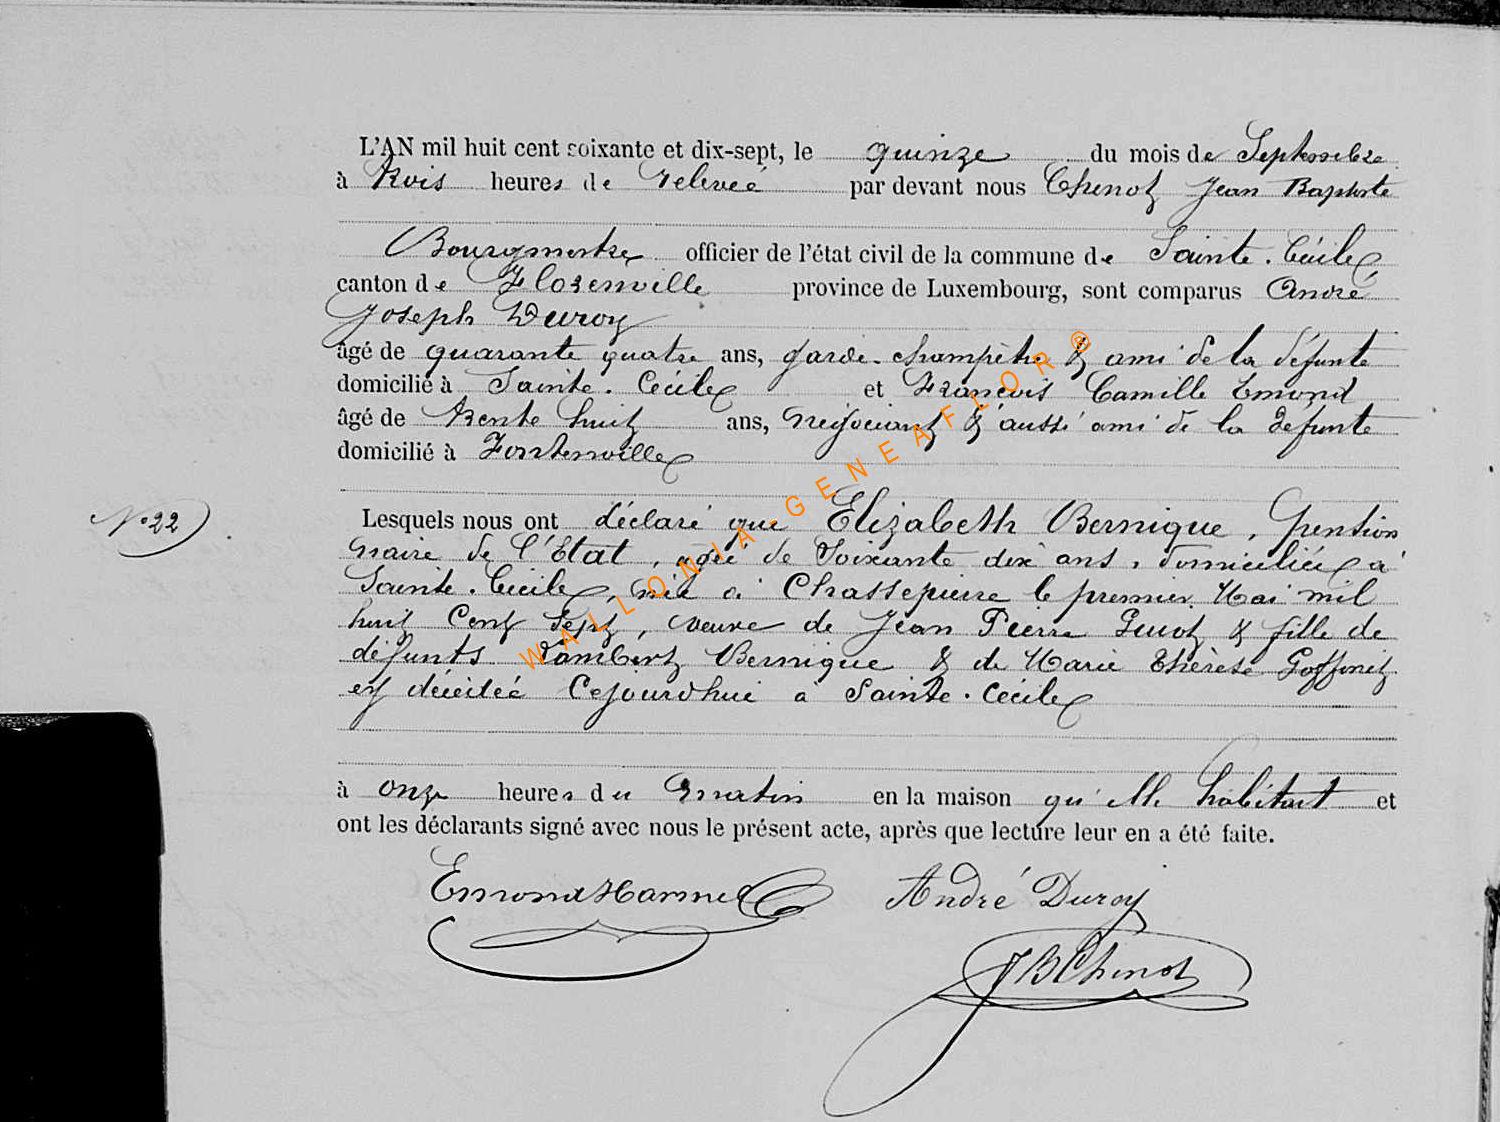 L'AN mil huit cent soixante et dix-sept, le quinze du mois de Septembre
à trois heures de relevée par devant nous Chenot Jean Baptiste
Bourgmestre officier de l'état civil de la commune de Sainte-Cécile
canton de Florenville province de Luxembourg, sont comparus André
Joseph Duroy
âgé de quarante quatre ans, garde-champêtre & ami de la défunte
domicilié à Sainte-Cécile et François Camille Emond
âgé de trente huit ans, négociant & aussi ami de la défunte
domicilié à Fontenoille
N° 22
Lesquels nous ont déclaré que Elizabeth Bernique, pension
naire de l'Etat, agée de Soixante dix ans, domiciliée à
Sainte-Cécile, née à Chassepierre le premier Mai mil
huit Cent Sept, veuve de Jean Pierre Guiot & fille de
défunts Lambert Bernique & de Marie Thérèse Goffinet
est décédée Cejourdhui à Sainte-Cécile
à onze heures du matin en la maison qu'elle habitait et
ont les déclarants signé avec nous le présent acte, après que lecture leur en a été faite.
Emond Hamel André Duroy
JB Chenot
WALLONIA-GENEAFLOR®